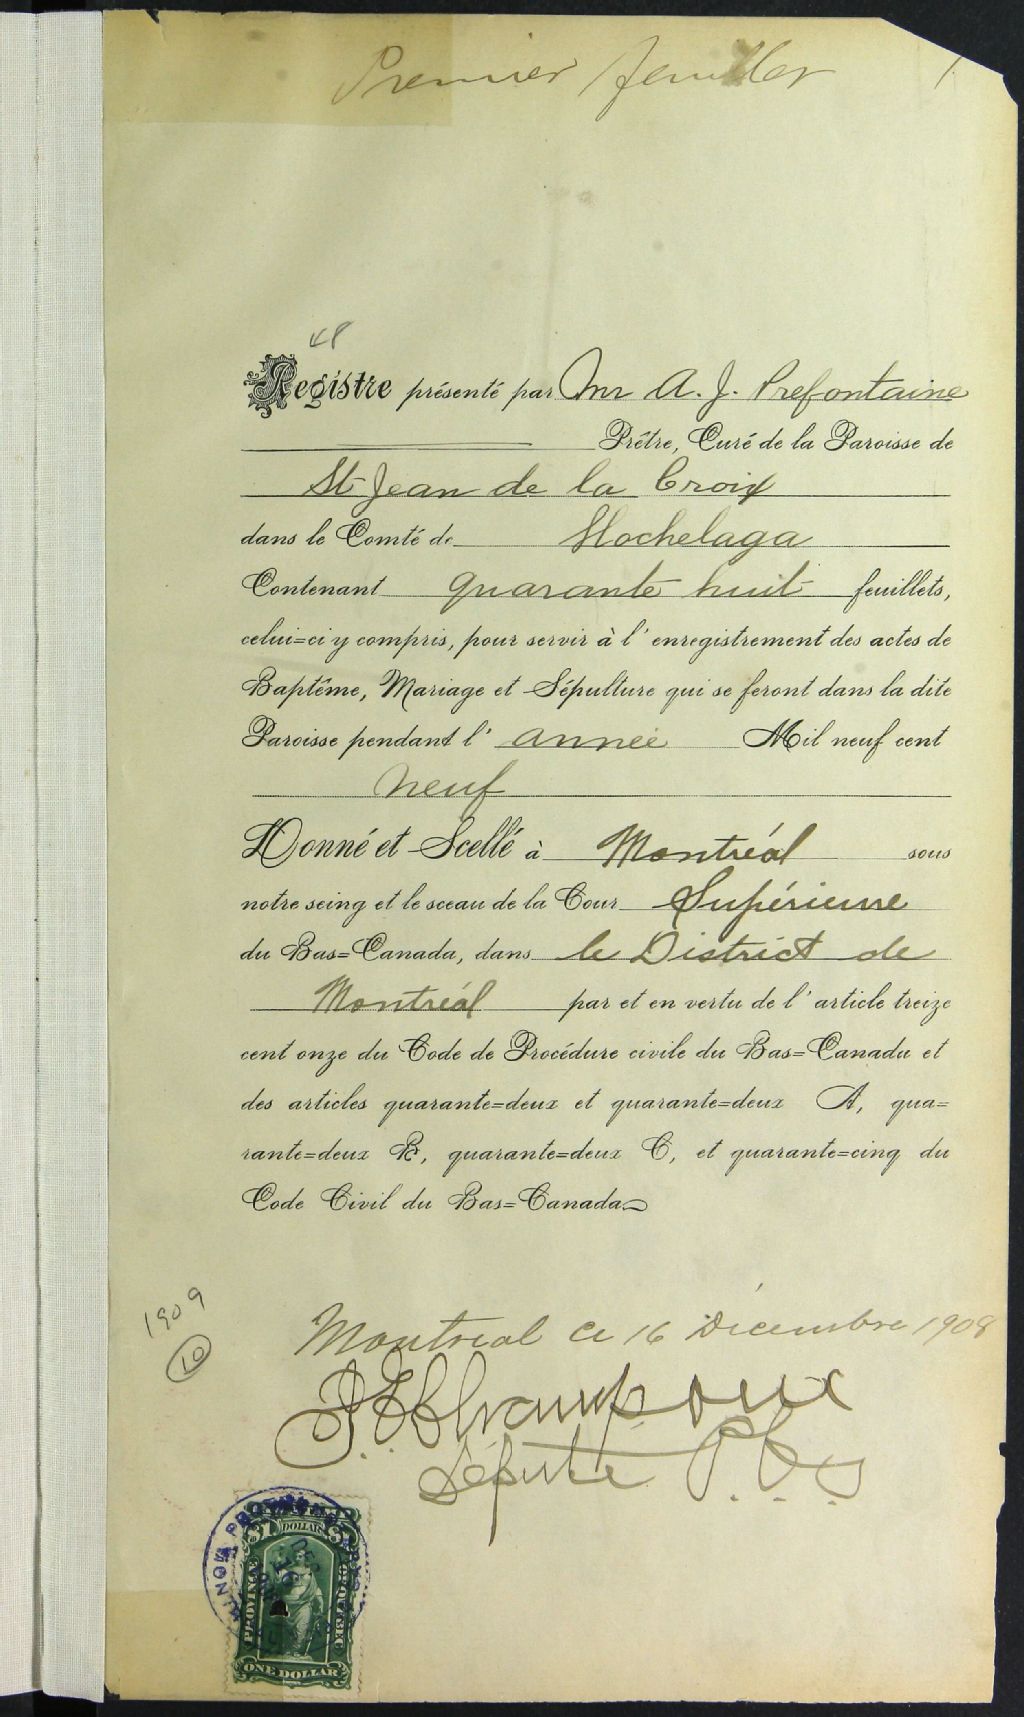 Premier feuillet 1.
48
Registre présenté par Mr A. J. Prefontaine
Prêtre, Curé de la Paroisse de
St Jean de la Croix
dans le Comté de Hochelaga
Contenant quarante huit feuillets,
celui=ci y compris, pour servir à l'enregistrement des actes de
Baptême, Mariage et Sépulture qui se feront dans la dite
Paroisse pendant l'année Mil neuf cent
neuf
Donné et Scellé à Montréal sous
notre seing et le sceau de la Cour Supérieure
du Bas=Canada, dans le District de
Montréal par et en vertu de l'article treize
cent onze du Code de Procédure civile du Bas=Canada et
des articles quarante=deux et quarante=deux A, qua=
rante=deux B, quarante=deux C, et quarante=cinq du
Code Civil du Bas=Canada
1909
10
Montreal ce 16 Décembre 1908
Député P. C. S
$1 DOLLAR $1
PROVINCE QUEBEC
DEC 16
ONE DOLLAR